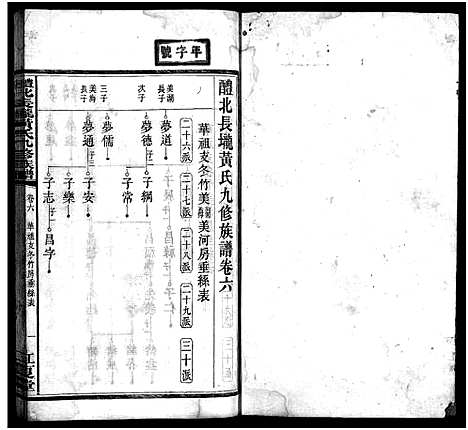 年字號
醴北長壠黃氏九修族譜卷六
華祖支冬竹美湖美海美河房垂絲表
二十六派 二十七派 二十八派 二十九派 三十派
美湖長子 夢道
次子 夢德 子綱
子常
三子 夢儒
美海長子 夢通 子安
子樂
子志 昌字
醴北長壠黃氏九修族譜
卷六 華祖支冬竹房垂絲表
一
江夏堂